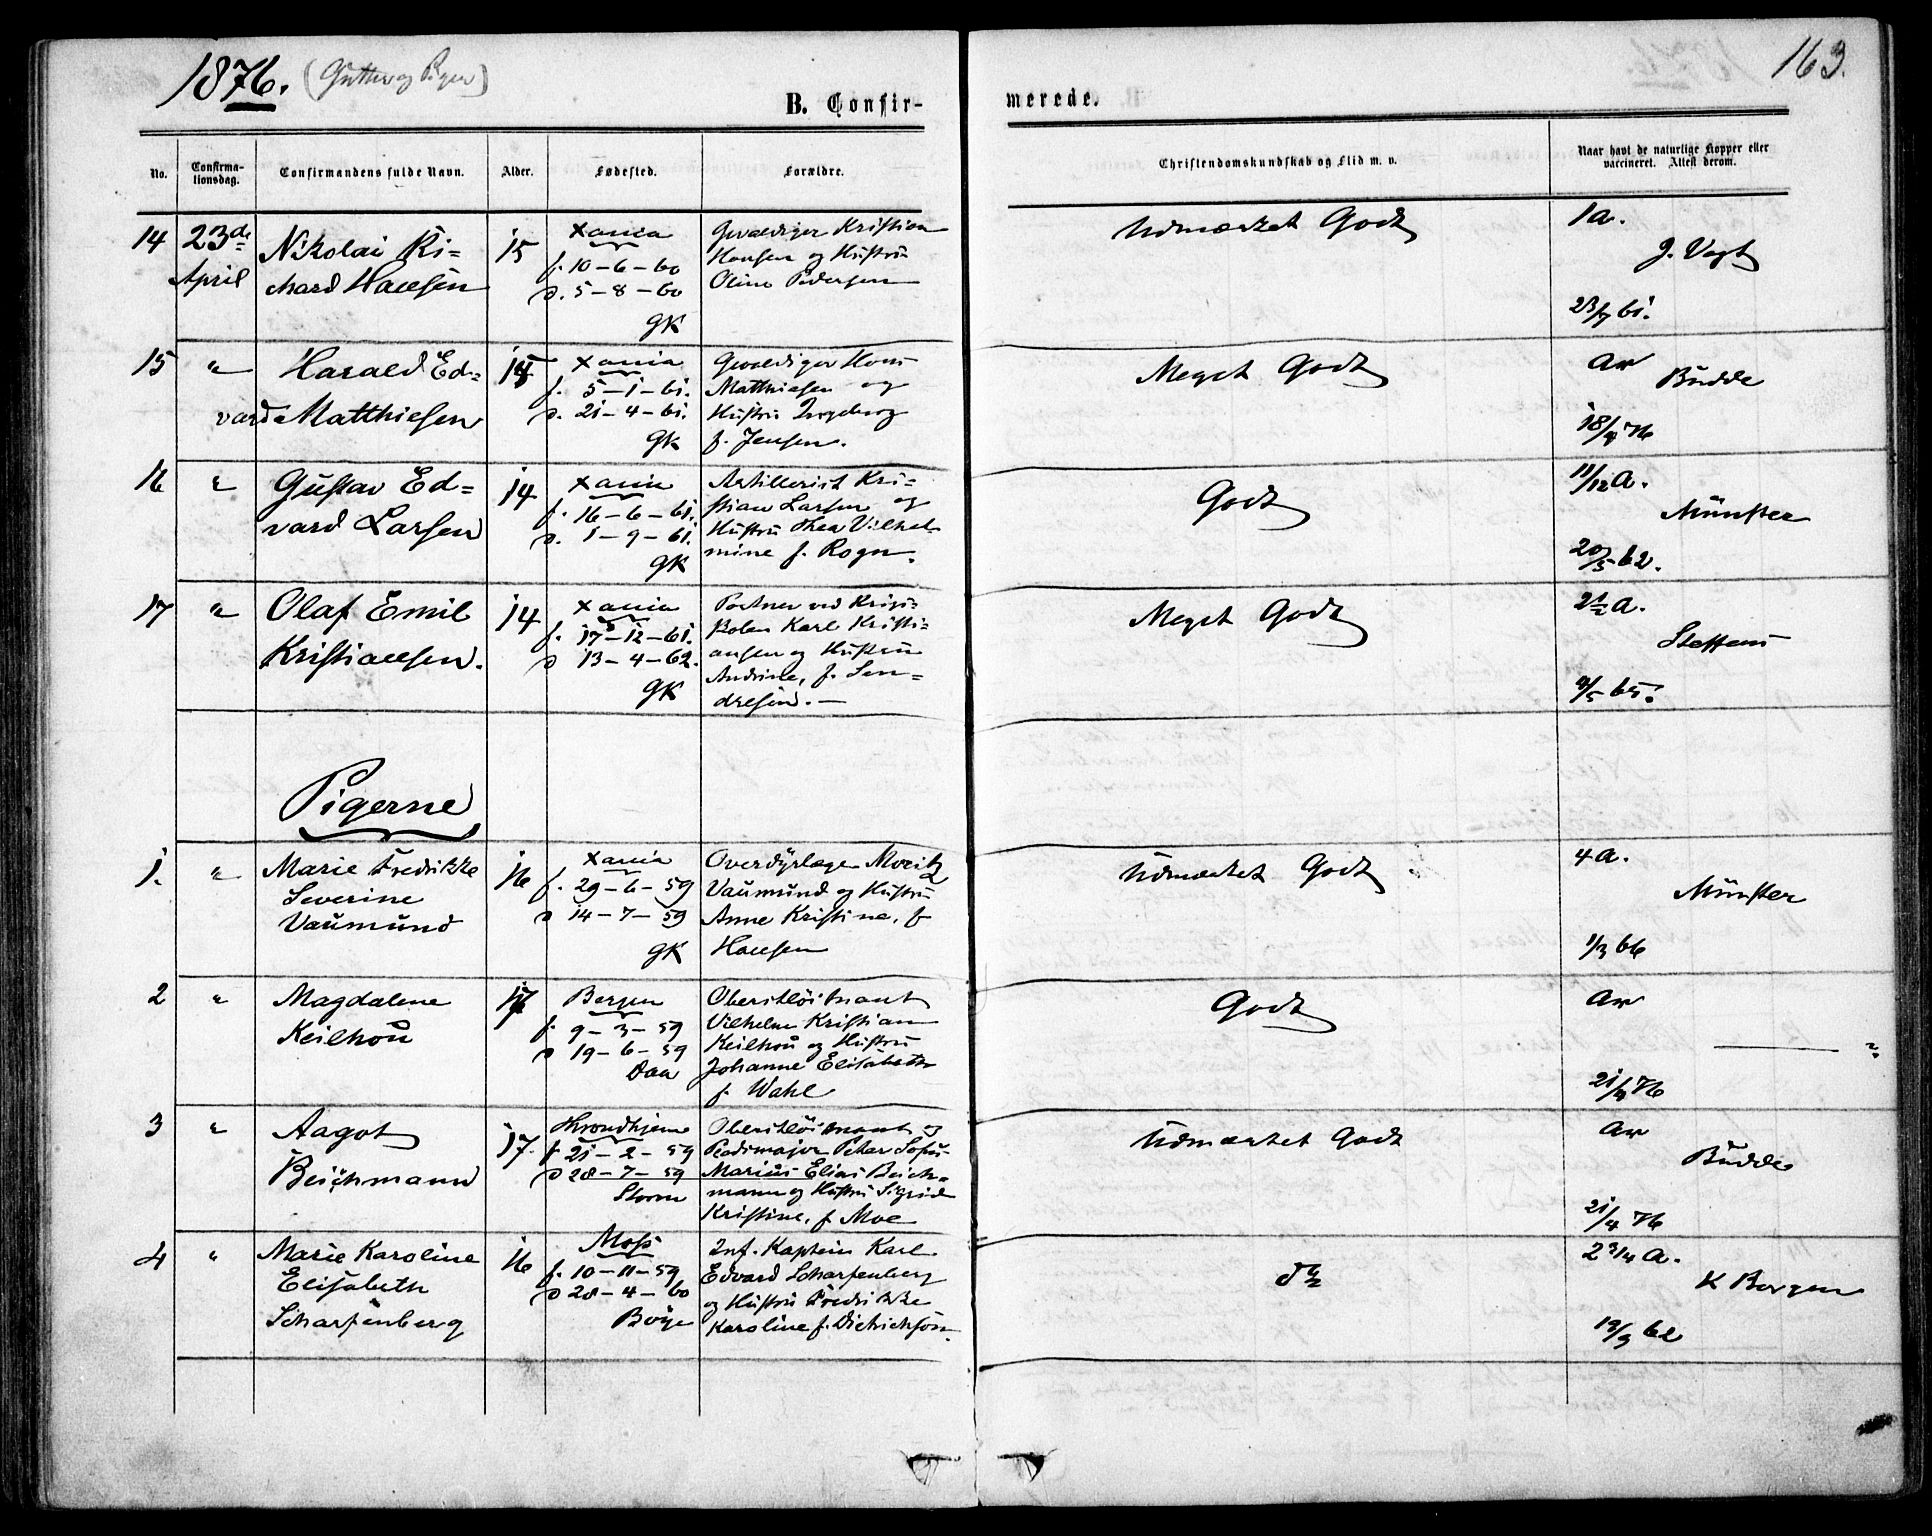 1876. (Gutter og Piger)
163.
B. Confir-
merede.
No.
Confirma-
tionsdag.
Confirmandens fulde Navn.
Alder.
Fødested.
Forældre.
Christendomskundskab og Flid m. v.
Naar havt de naturlige Kopper eller
vaccineret. Attest derom.
14 23de April
Nikolai Ri-
chard Hansen
15
Xania
f. 10-6-60
d. 5-8-60
GK
Gevaldiger Kristian
Hansen og Hustru
Oline Pedersen
Udmærket Godt
1a.
J. Vogt
23/7 61.
15 "
Harald Ed-
vard Matthiesen
15
Xania
f. 5-1-61.
d. 21-4-61.
GK
Gevaldiger Hans
Matthiesen og
Hustru Ingeborg
f. Jensen.
Meget Godt
av
Budde
18/4 76
16 "
Gustav Ed-
vard Larsen
14
Xania
f. 16-6-61.
d. 1-9-61.
GK
Artillerist Kri-
stian Larsen og
Hustru Thea Vilhel-
mine f. Rogn.
Godt
11/12 a.
Münster
20/5 62.
17 "
Olaf Emil
Kristiansen.
14
Xania
f. 17-12-61.
d 13-4-62.
GK
Portner ved Krigs-
skolen Karl Kristi-
ansen og Hustru
Andrine, f. Sen-
dresen.-
Meget Godt
2 1/2 a.
Steffens
4/5 65.
Pigerne
1. "
Marie Fredrikke
Severine
Vaumund
16
Xania
f. 29-6-59
d 14-7-59
GK
Overdyrlæge Moritz
Vaumund og Hustru
Anne Kristine, f
Hansen
Udmærket Godt
4 a.
Münster
1/3 66
2 "
Magdalene
Keilhou
17
Bergen
f. 9-3-59
d 19-6-59
Daa
Oberstlöitnant
Vilhelm Kristian
Keilhou og Hustru
Johanne Elisabeth
f. Wahl
Godt
av
——— ?
21/4 76
3 "
Aagot
Beichmann
17.
Throndhjem
f 21-2-59
d 28-7-59
Storm
Oberstlöitnant og
Pladsmajor Peter Sofus
Marius Elias Beich-
mann og Hustru Sigrid
Kristine, f Moe
Udmærket Godt
av
Budde
21/4 76
4 "
Marie Karoline
Elisabeth
Scharfenberg
16
Moss
f. 10-11-59
d 28-4-60
Böye
Inf. Kaptein Karl
Edvard Scharfenberg
og Hustru Fredrikke
Karoline f. Dietrichson.
do
2 3/4 a.
K Borgen
19/9 62